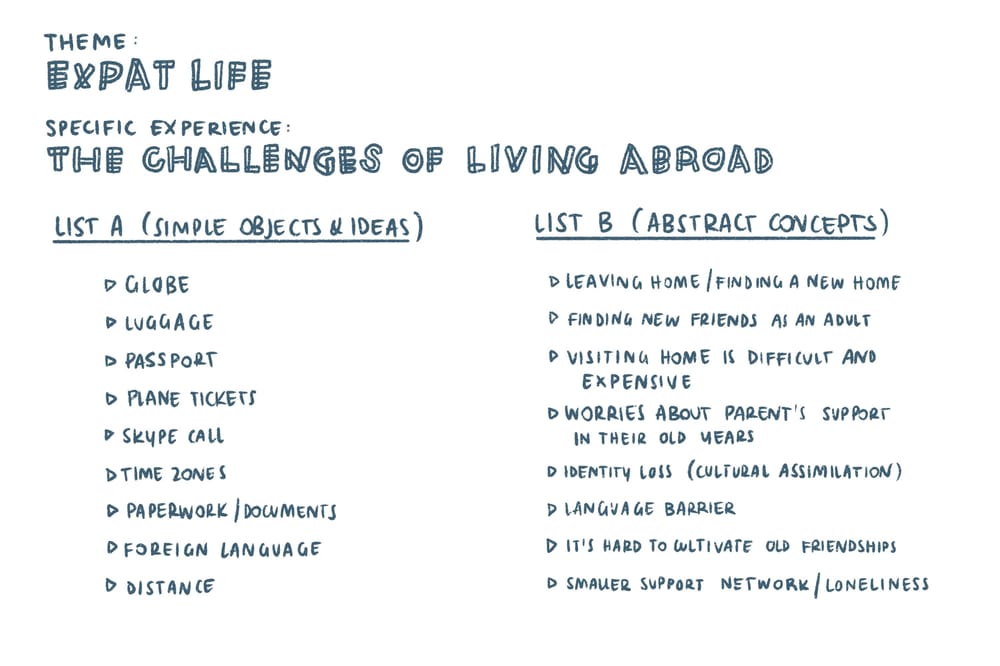 THEME:
EXPAT LIFE
SPECIFIC EXPERIENCE:
THE CHALLENGES OF LIVING ABROAD
LIST A (SIMPLE OBJECTS & IDEAS)
▷ GLOBE
▷ LUGGAGE
▷ PASSPORT
▷ PLANE TICKETS
▷ SKYPE CALL
▷ TIME ZONES
▷ PAPERWORK/DOCUMENTS
▷ FOREIGN LANGUAGE
▷ DISTANCE
LIST B (ABSTRACT CONCEPTS)
▷ LEAVING HOME/FINDING A NEW HOME
▷ FINDING NEW FRIENDS AS AN ADULT
▷ VISITING HOME IS DIFFICULT AND
EXPENSIVE
▷ WORRIES ABOUT PARENT'S SUPPORT
IN THEIR OLD YEARS
▷ IDENTITY LOSS (CULTURAL ASSIMILATION)
▷ LANGUAGE BARRIER
▷ IT'S HARD TO CULTIVATE OLD FRIENDSHIPS
▷ SMALLER SUPPORT NETWORK/LONELINESS